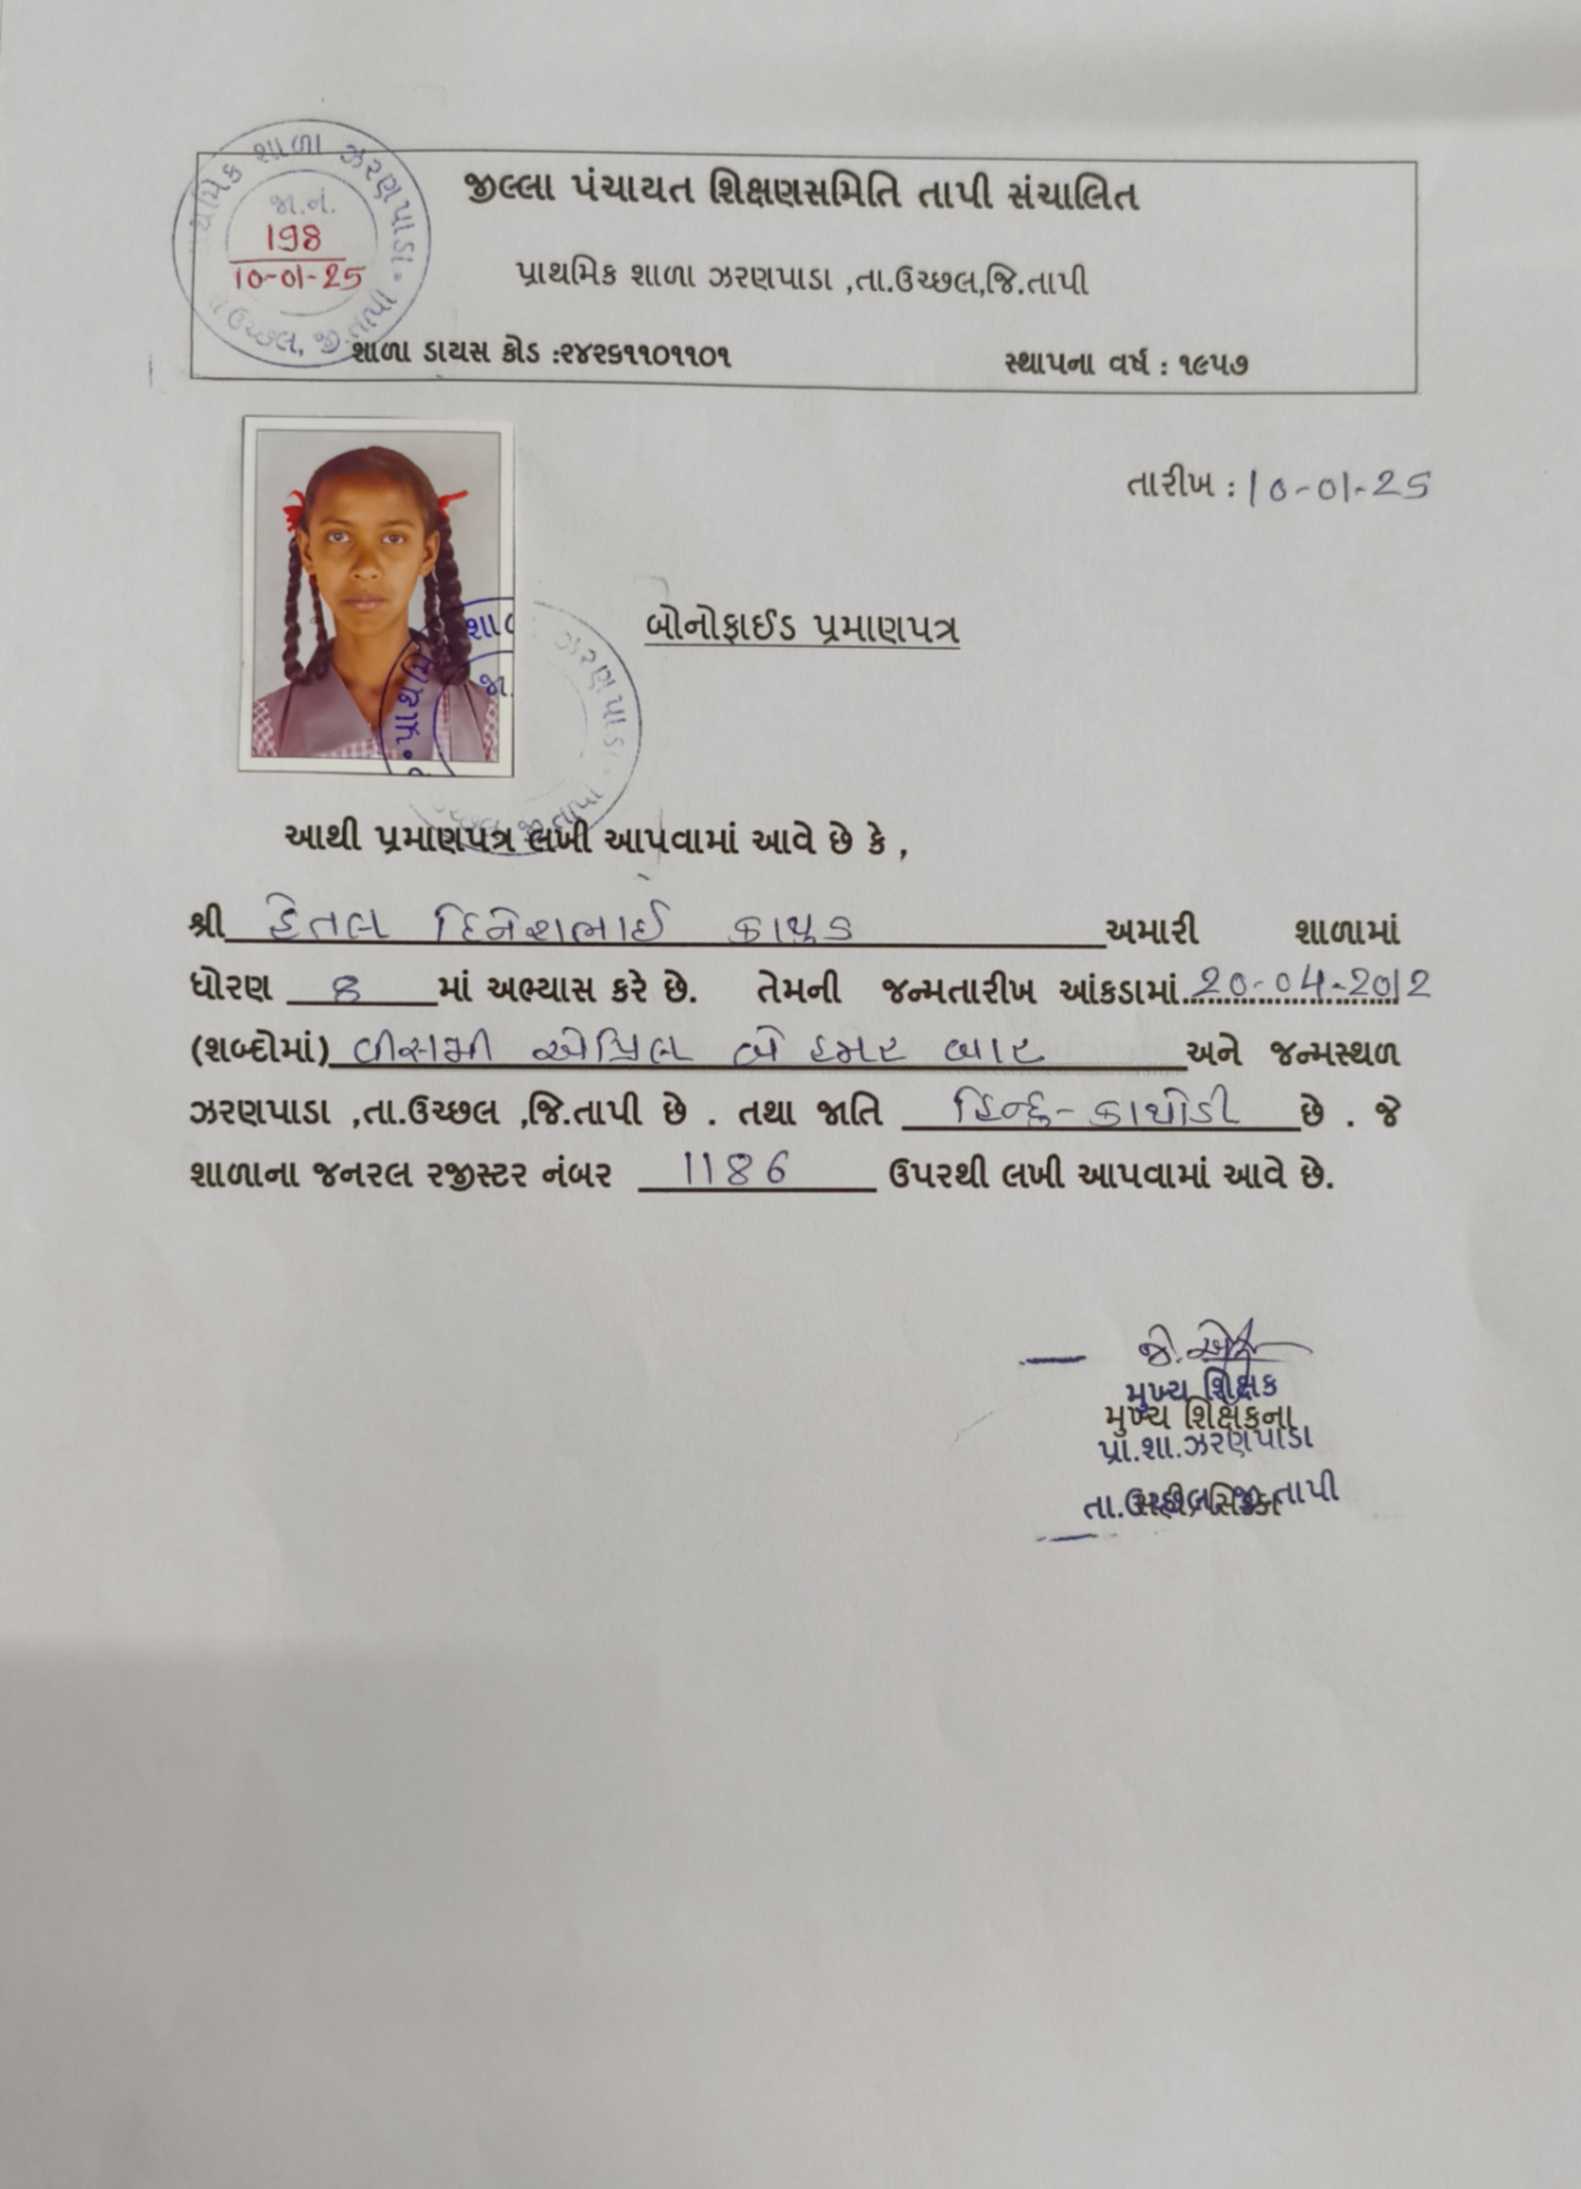 પ્રાથમિક શાળા ઝરણપાડા
ઉચ્છલ, જી.તાપી
જા.નં.
198
10-01-25
જીલ્લા પંચાયત શિક્ષણસમિતિ તાપી સંચાલિત
પ્રાથમિક શાળા ઝરણપાડા ,તા.ઉચ્છલ,જિ.તાપી
શાળા ડાયસ કોડ :૨૪૨૬૧૧૦૧૧૦૧ સ્થાપના વર્ષ : ૧૯૫૭
તારીખ : 10-01-25
બોનોફાઈડ પ્રમાણપત્ર
આથી પ્રમાણપત્ર લખી આપવામાં આવે છે કે ,
શ્રી હેતલ દિનેશભાઈ અમારી શાળામાં
ધોરણ 8 માં અભ્યાસ કરે છે. તેમની જન્મતારીખ આંકડામાં 20-04-2012
(શબ્દોમાં) વીસમી એપ્રિલ બે હજાર બાર અને જન્મસ્થળ
ઝરણપાડા ,તા.ઉચ્છલ ,જિ.તાપી છે . તથા જાતિ હિન્દુ-કાથોડી છે . જે
શાળાના જનરલ રજીસ્ટર નંબર 1186 ઉપરથી લખી આપવામાં આવે છે.
મુખ્ય શિક્ષક
મુખ્ય શિક્ષકના
પ્રા.શા.ઝરણપાડા
તા.ઉચ્છલ, જી.તાપી